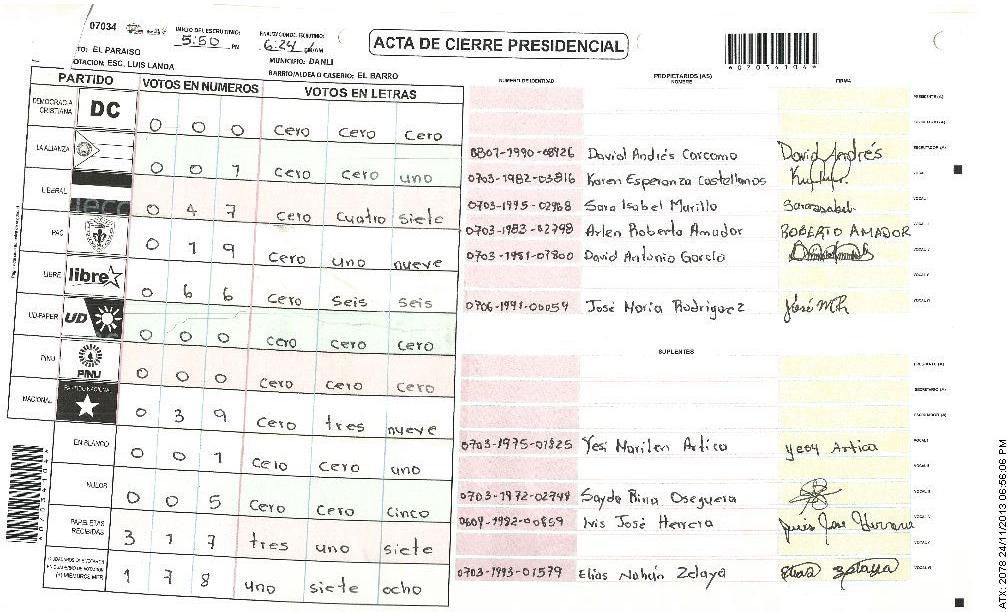 07034 INICIO DEL ESCRUTINIO: 5:50 PM 6:24 PM
ACTA DE CIERRE PRESIDENCIAL
TO: EL PARAISO MUNICIPIO: DANLI
OTACION: ESC. LUIS LANDA BARRIO/ALDEA O CASERIO: EL BARRO
PARTIDO VOTOS EN NUMEROS VOTOS EN LETRAS
DEMOCRACIA CRISTIANA DC 0 0 0 Cero Cero Cero
LA ALIANZA 0 0 1 Cero Cero uno
LIBERAL 0 4 7 Cero Cuatro siete
PAC 0 1 9 Cero uno nueve
LIBRE libre 0 6 6 Cero seis seis
UD-FAPER UD 0 0 0 Cero Cero Cero
PINU PINU 0 0 0 Cero Cero Cero
NACIONAL PARTIDO NACIONAL 0 3 9 Cero tres nueve
EN BLANCO 0 0 1 Cero Cero uno
NULOS 0 0 5 Cero Cero Cinco
PAPELETAS RECIBIDAS 3 1 7 tres uno siete
1 7 8 uno siete ocho
NUMERO DE IDENTIDAD PROPIETARIOS (AS) NOMBRE FIRMA
PRESIDENTE (A)
SECRETARIO (A)
0801-1990-08926 David Andrés Carcamo David Andrés ESCRUTADOR (A)
0703-1982-03816 Karen Esperanza Castellanos VOCAL I
0703-1995-02968 Sara Isabel Murillo Sara Isabel VOCAL II
0703-1983-02798 Arlen Roberto Amador ROBERTO AMADOR
0703-1981-01800 David Antonio García
VOCAL V
0706-1991-00054 José María Rodriguez José M R
SUPLENTES
PRESIDENTE (A)
SECRETARIO (A)
ESCRUTADOR (A)
0703-1975-01825 Yesi Marilen Artica Yesy Artica VOCAL I
VOCAL II
0703-1972-02748 Sayda Rina Oseguera VOCAL III
0604-1982-00859 Ivis José Herrera
0703-1993-01579 Elias Nahún Zelaya Elias Zelaya
ATX: 2078 24/11/2013 06:56:06 PM